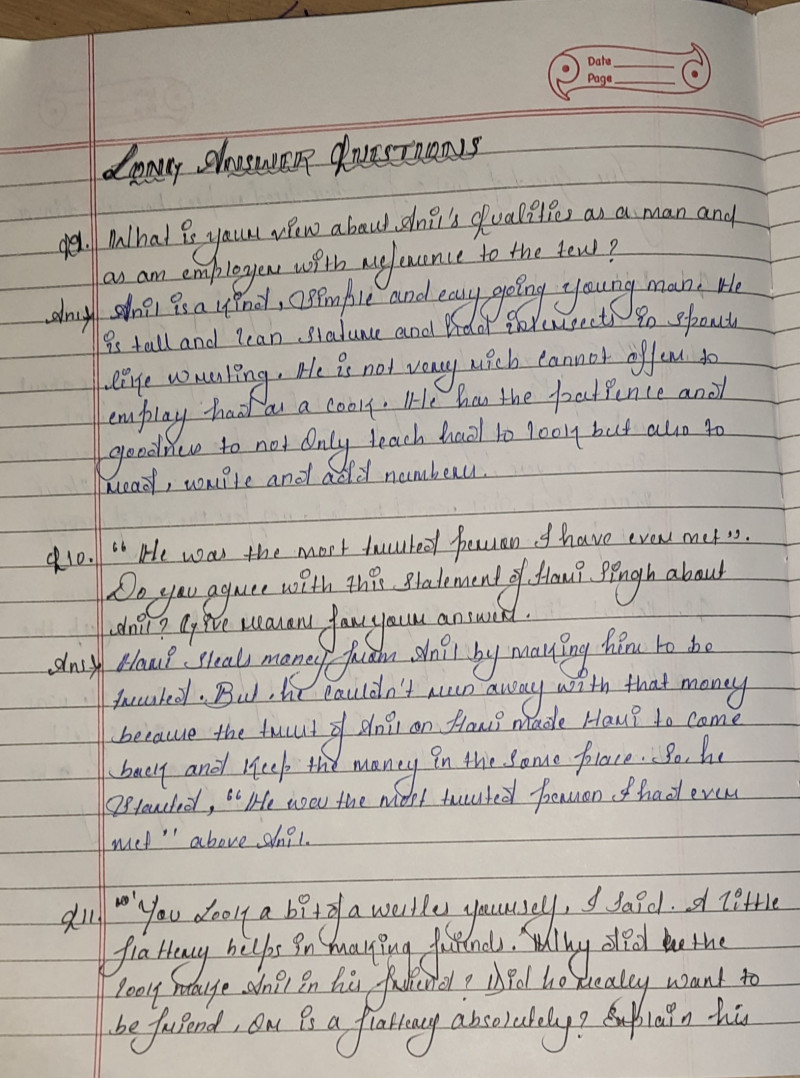 Date
Page
LONG ANSWER QUESTIONS
Q9. What is your view about Anil's Qualities as a man and
as am employer with reference to the text?
Ans) Anil is a kind, simple and easy going young man. He
is tall and lean stature and had intersects in sports
like wrestling. He is not very rich cannot offer to
employ had as a cook. He has the patience and
goodness to not only teach had to look but also to
read, write and add numbers.
Q10. "He was the most trusted person I have ever met".
Do you agree with this statement of Hari Singh about
Anil? Give reasons for your answer.
Ans) Hari steals money from Anil by making him to be
trusted. But he couldn't run away with that money
because the trust of Anil on Hari made Hari to come
back and keep the money in the same place. So, he
Started, "He was the most trusted person I had ever
met" above Anil.
Q11. "You Look a bit of a westler yourself, I said. A little
flattery helps in making friends. Why did the
look make Anil in his friend? Did he realey want to
be friend, or is a flattery absolutely? Explain his